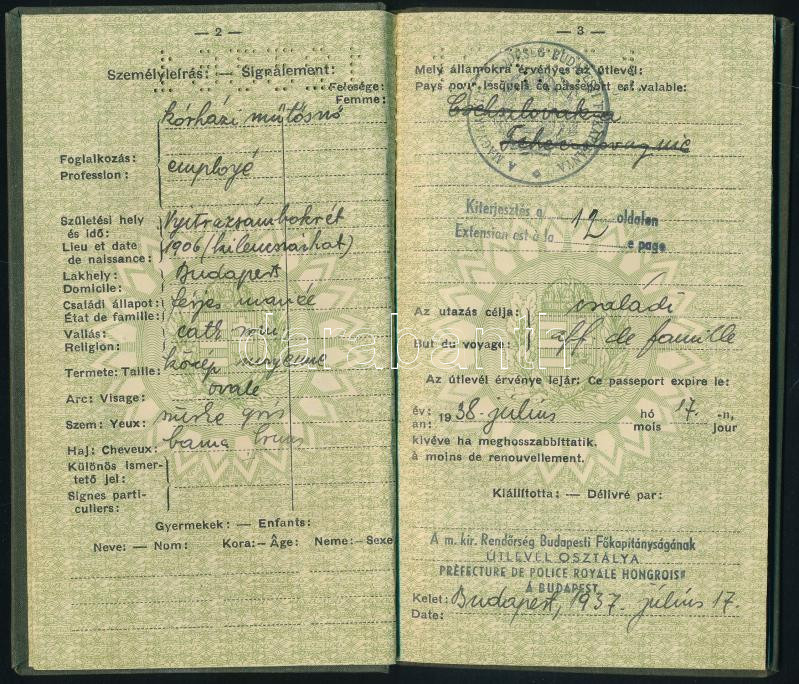 — 2 —
Személyleírás: — Signalement:
Felesége:
Femme:
kórházi műtősnő
Foglalkozás:
Profession:
employé
Születési hely
és idő:
Lieu et date
de naissance:
Nyitrazsámbokrét
1906 (kilencszázhat)
Lakhely:
Domicile:
Budapest
Családi állapot:
État de famille:
férjes mariée
Vallás:
Religion:
cath
Termete: Taille:
közép moyenne
Arc: Visage:
ovale
Szem: Yeux:
szürke gris
Haj: Cheveux:
barna bruns
Különös ismer-
tető jel:
Signes parti-
culiers:
Gyermekek: — Enfants:
Neve: — Nom: Kora: — Âge: Neme: — Sexe
— 3 —
Mely államokra érvényes az útlevél:
Pays pour lesquels ce passeport est valable:
Csehszlovákia
Tchécoslovaquie
Kiterjesztés a 12 oldalon
Extension est à la e page
Az utazás célja:
But du voyage:
családi
aff. de famille
Az útlevél érvénye lejár: Ce passeport expire le:
év: 1938. július hó 17. -n,
an: mois jour
kivéve ha meghosszabbíttatik.
à moins de renouvellement.
Kiállította: — Délivré par:
A m. kir. Rendőrség Budapesti Főkapitányságának
ÚTLEVÉL OSZTÁLYA
PRÉFECTURE DE POLICE ROYALE HONGROISE
À BUDAPEST
Kelet: Budapest, 1937. július 17.
Date:
darabanth